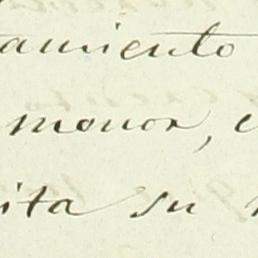 amiento
monor, e
ita su